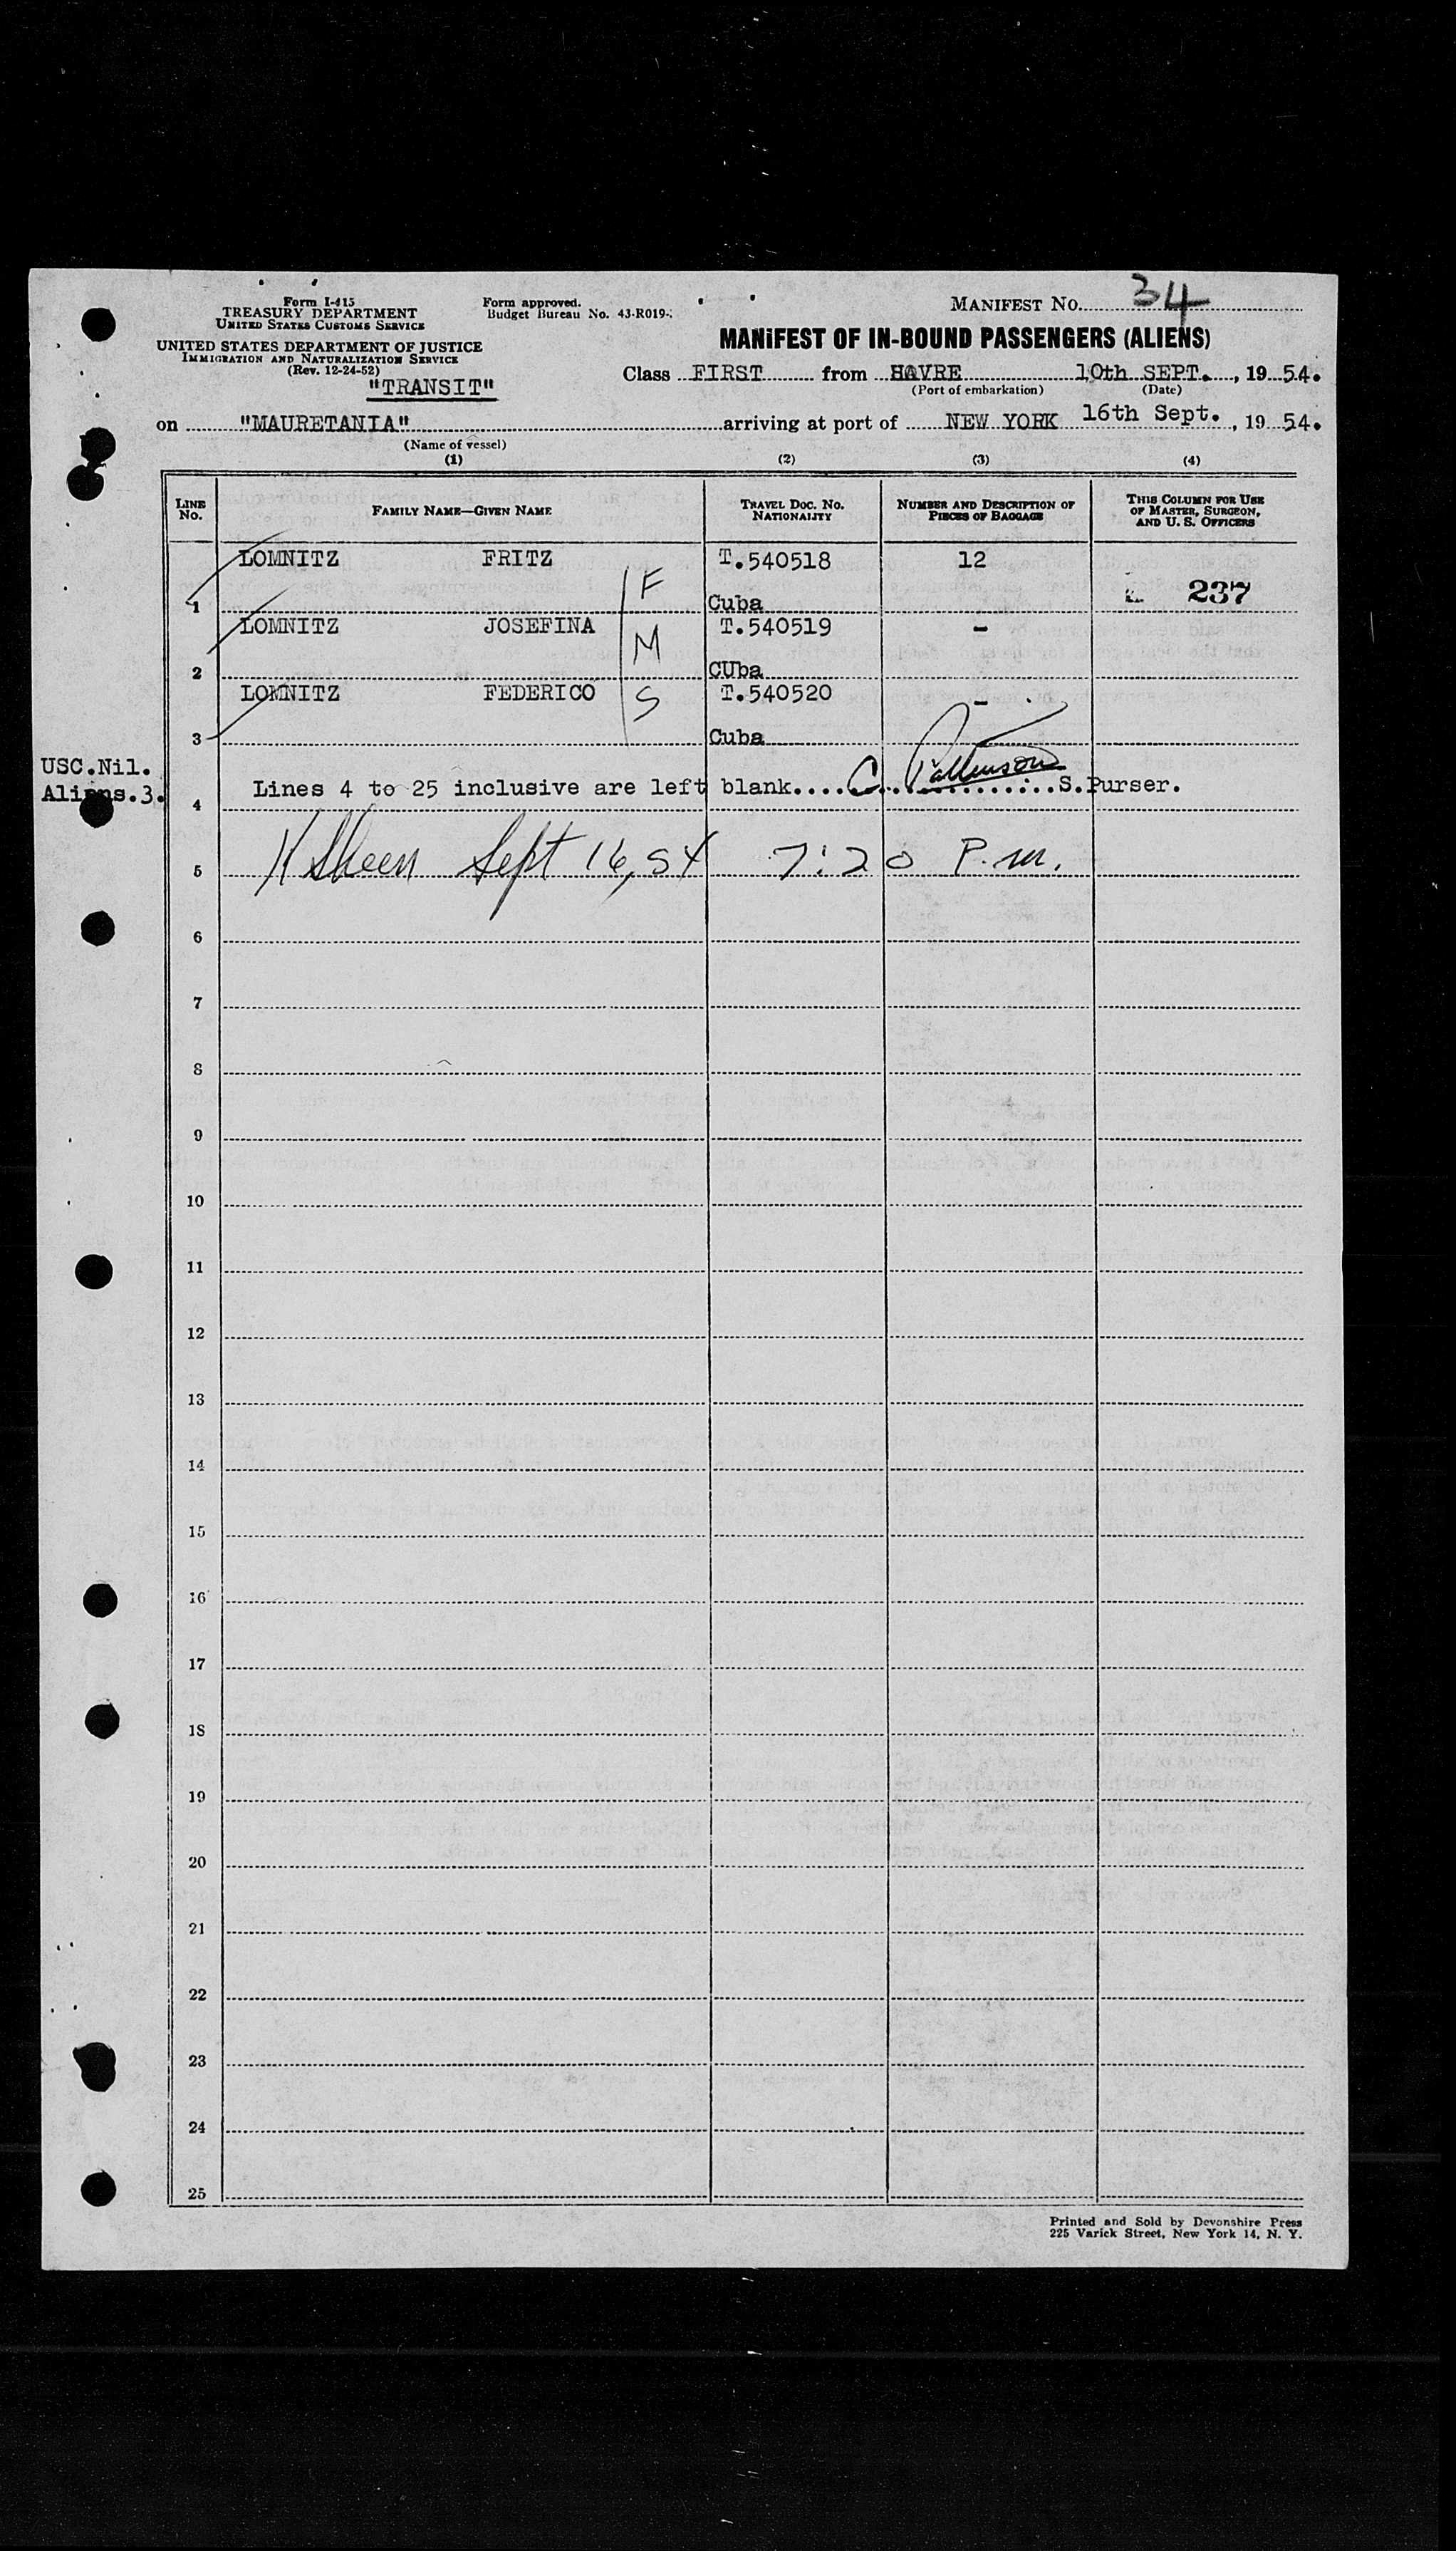 Form I-415
TREASURY DEPARTMENT
UNITED STATES CUSTOMS SERVICE
UNITED STATES DEPARTMENT OF JUSTICE
IMMIGRATION AND NATURALIZATION SERVICE
(Rev. 12-24-52)
"TRANSIT"
Form approved.
Budget Bureau No. 43-R019-
MANIFEST NO. 34
MANIFEST OF IN-BOUND PASSENGERS (ALIENS)
Class FIRST from HAVRE 10th SEPT., 1954.
(Port of embarkation) (Date)
on "MAURETANIA" arriving at port of NEW YORK 16th Sept., 1954.
(Name of vessel)
(1) (2) (3) (4)
LINE NO. FAMILY NAME—GIVEN NAME TRAVEL DOC. NO. NATIONALITY NUMBER AND DESCRIPTION OF PIECES OF BAGGAGE THIS COLUMN FOR USE OF MASTER, SURGEON, AND U. S. OFFICERS
LOMNITZ FRITZ F T.540518 12
1 Cuba 237
LOMNITZ JOSEFINA M T.540519 -
2 CUba
LOMNITZ FEDERICO S T.540520 -
3 Cuba
USC.Nil.
Aliens.3.
4 Lines 4 to 25 inclusive are left blank....C. Pattenson....S.Purser.
5 Sheen Sept 16, 54 7:20 P.m.
6
7
8
9
10
11
12
13
14
15
16
17
18
19
20
21
22
23
24
25
Printed and Sold by Devonshire Press
225 Varick Street, New York 14, N. Y.